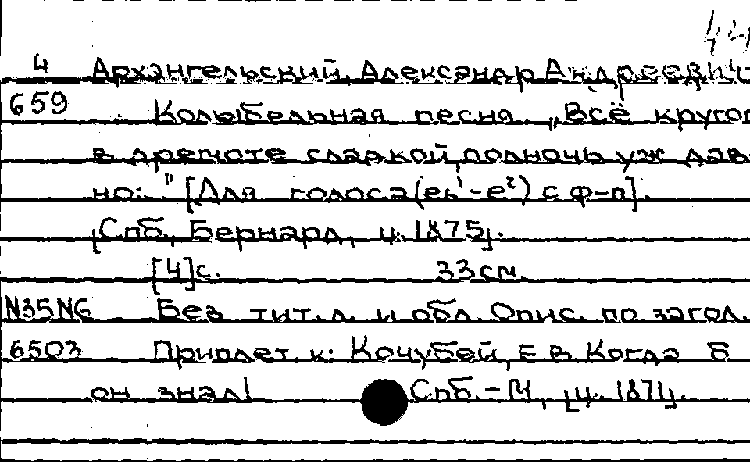 44
4 Архангельский, Александр Андреевич
659 Колыбельная песня. „Всё кругом
в дремоте сладкой, полночь уж дав-
но:" [Для голоса (es¹-e²) с ф-п].
[Спб., Бернард, ц. 1875].
[4]с. 33см.
N35N6 Без тит. л. и обл. Опис. по загол.
6503 Приплет. к: Кочубей, Е В Когда б
он знал! Спб.-М, [ц. 1871].